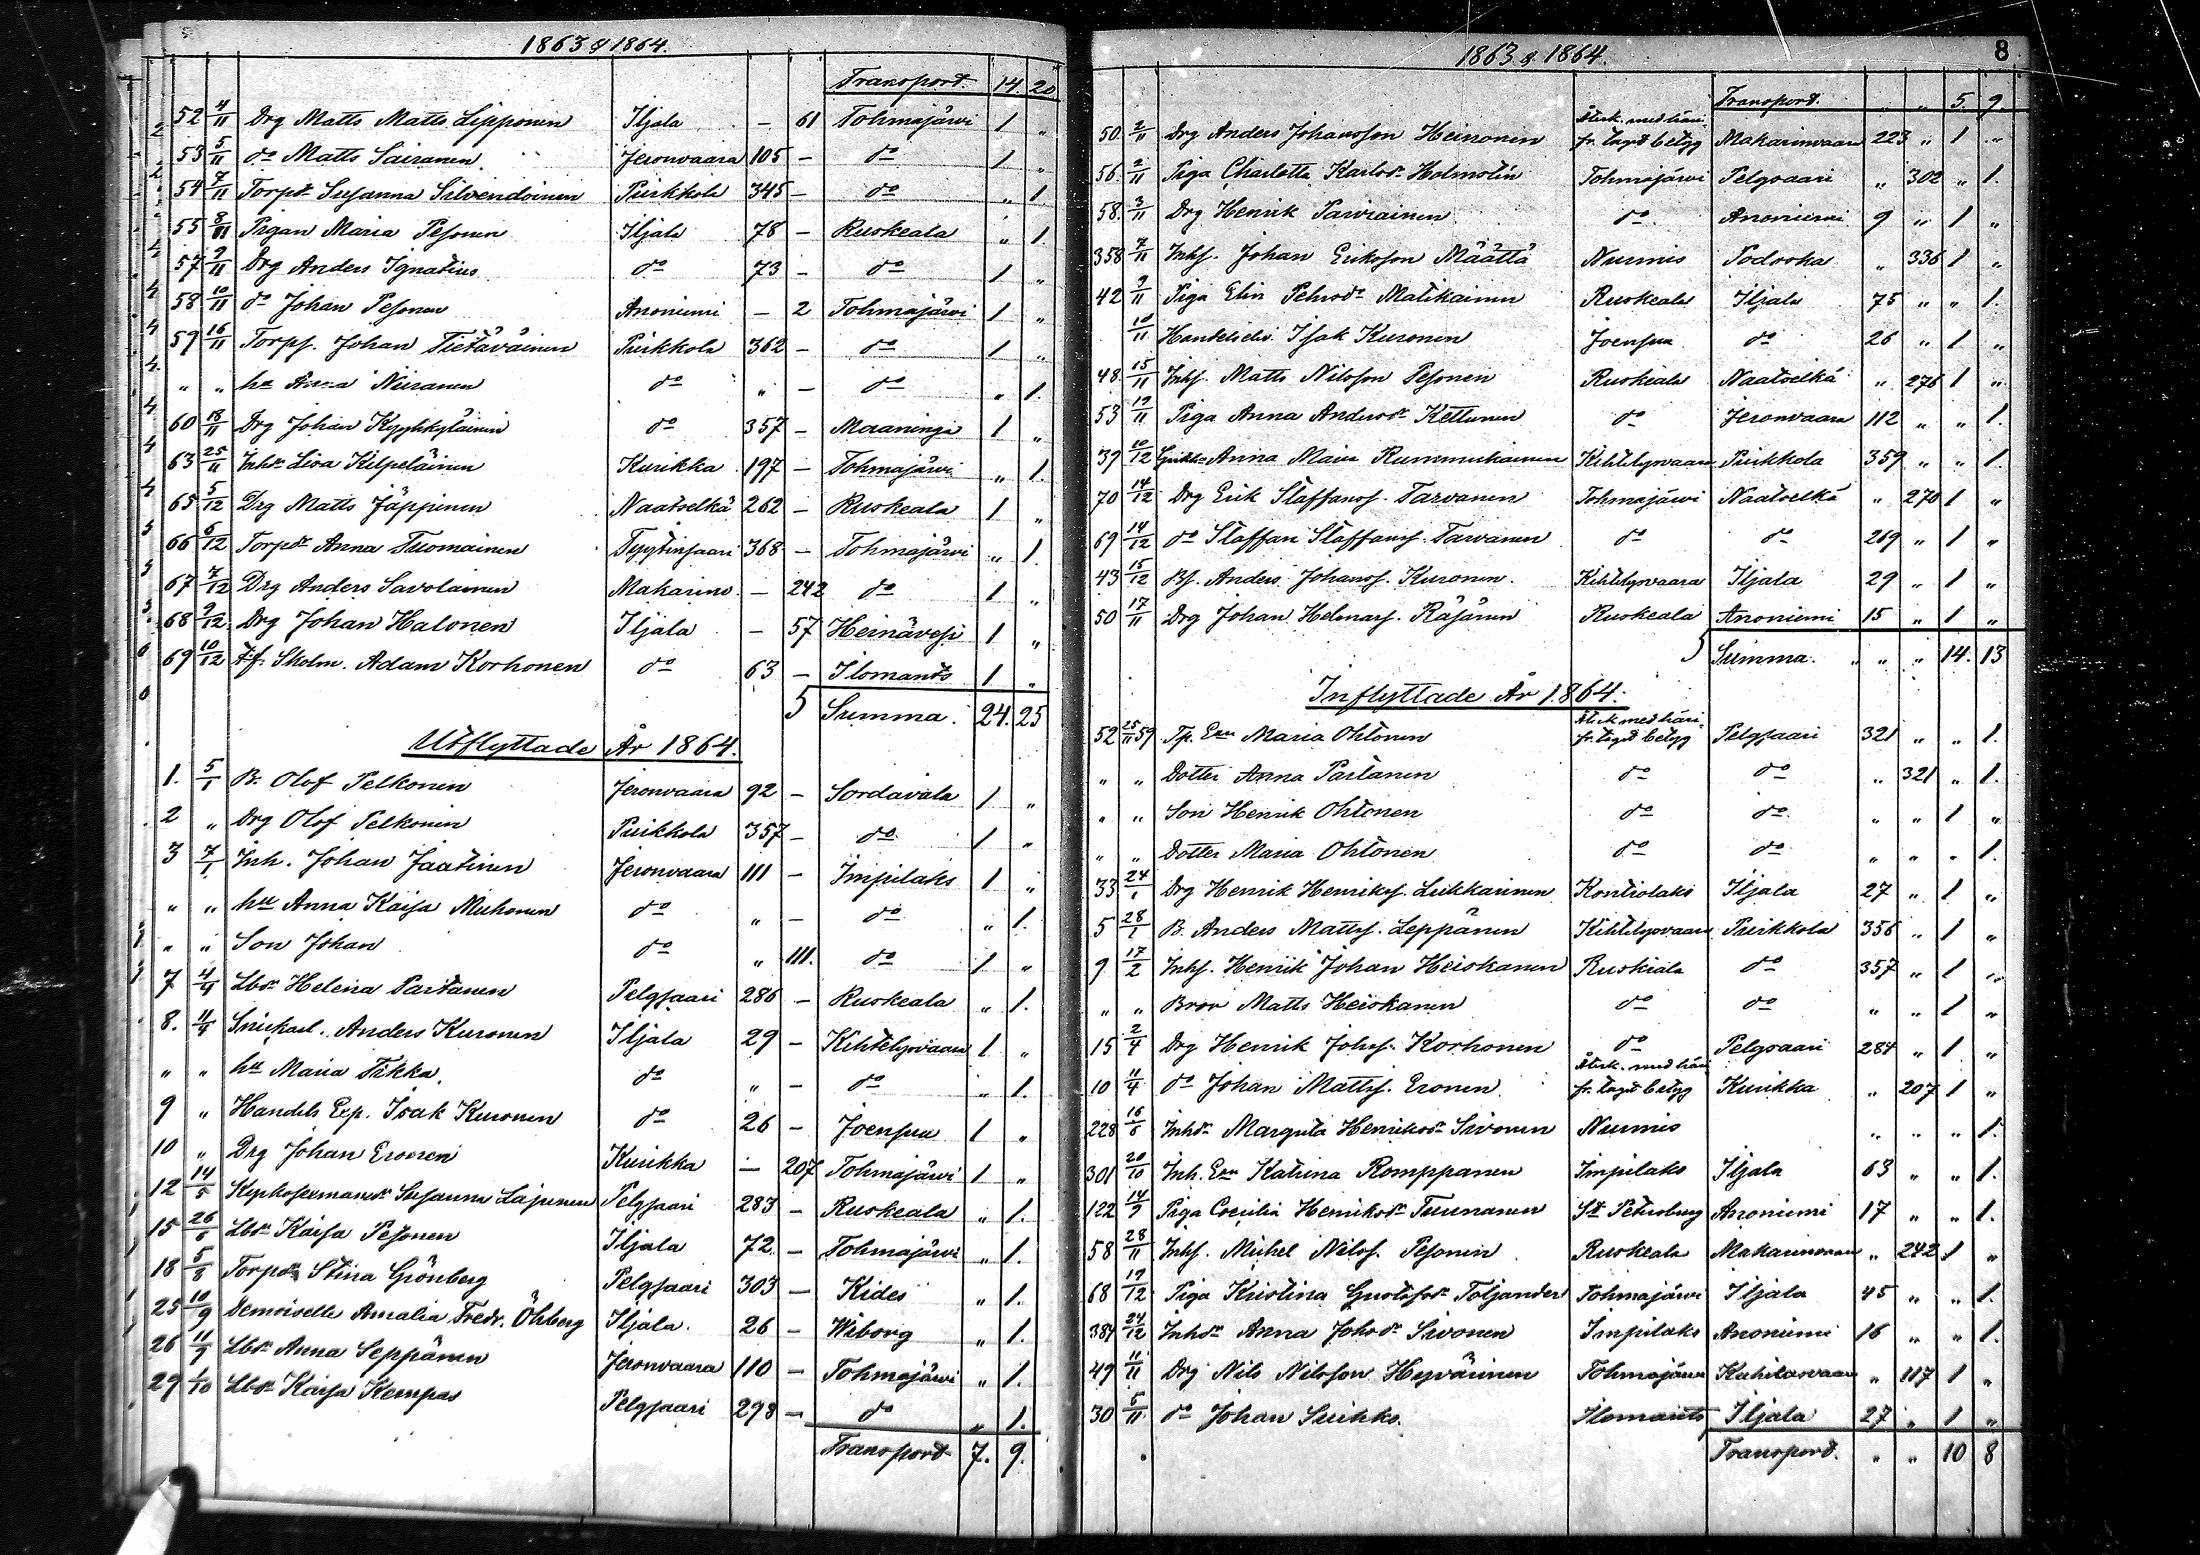 1863 & 1864.
Transport. 14. 20
52 4/11 Drg Matts Matts. Lipponen Iljala — 61 Tohmajärvi 1 „
53 5/11 do Matts Sairanen Jeronvaara 105 — do 1 „
54 7/11 Torpdr Susanna Silvendoinen Puikkola 345 — do „ 1
55 8/11 Pigan Maria Pesonen Iljala 78 — Ruskeala „ 1.
57 9/11 Drg Anders Ignatius do 73 — do 1 „
58 10/11 do Johan Pesonen Anoniemi — 2 Tohmajärvi 1 „
59 16/11 Torps. Johan Tietäväinen Puikkola 362 — do 1 „
„ „ hu Anna Niiranen do „ — do „ 1.
60 18/11 Drg Johan Kypphyläinen do 357 — Maaninga 1 „
63 25/11 Inhdr Lisa Kilpeläinen Kurikka 197 — Tohmajärvi „ 1.
65 5/12 Drg Matts Jäppinen Naatselkä 262 — Ruskeala 1 „
66 6/12 Torpdr Anna Tuomainen Tyytinsaari 368 — Tohmajärvi „ 1.
67 7/12 Drg Anders Savolainen Makarino — 242 do 1 „
68 9/12 Drg Johan Halonen Iljala — 57 Heinävesi 1 „
69 10/12 F.f. Skolm. Adam Korhonen do 63 — Ilomants 1 „
5 Summa. 24. 25
Utflyttade År 1864.
1. 5/1 B. Olof Pelkonen Jeronvaara 92 — Sordavala 1 „
2 „ Drg Olof Pelkonen Puikkola 357 — do 1 „
3 7/1 Inh. Johan Jaatinen Jeronvaara 111 — Impilaks 1 „
„ „ hu Anna Kaisa Miihonen do „ — do „ 1.
„ „ Son Johan do „ 111. do 1 „
7 4/4 Lbdr Helena Partanen Pelgjaari 286 — Ruskeala „ 1.
8. 11/4 Snickarl. Anders Kuronen Iljala 29 — Kihtelysvaara 1 „
„ „ hu Maria Tikka. do „ — do „ 1.
9 „ Handels Exp. Isak Kuronen do 26 — Joensuu 1 „
10 „ Drg Johan Eronen Kurikka — 207 Tohmajärvi 1 „
12 14/5 Susanna Lajunen Pelgjaari 283 — Ruskeala „ 1.
15 26/6 Lbdr Kaisa Pesonen Iljala 72 — Tohmajärvi „ 1.
18 5/8 Torpdr Stina Grönberg Pelgjaari 303 — Kides „ 1.
25 10/9 Demoiselle Amalia Fredr. Öhberg Iljala. 26 — Wiborg „ 1.
26 11/9 Lbdr Anna Seppänen Jeronvaara 110 — Tohmajärvi „ 1.
29 1/10 Lbdr Kaisa Kempas Pelgjaari 298 — do „ 1.
Transport 7. 9.
1863 & 1864. 8
Transport. „ 5. 9.
Återk. med häri-
50. 2/11 Drg Anders Johansson Heinonen fr. tagit betyg Makarinvaara 223 „ 1 „
56. 2/11 Piga Charlotta Karlsdr Holmstén Tohmajärvi Pelgsaari „ 302 „ 1.
58. 3/11 Drg Henrik Parviainen do Anoniemi 9 „ 1 „
358 7/11 Inhs. Johan Eriksson Määttä Nurmis Sodovha „ 336 1 „
42 9/11 Piga Elin Pehrsdr Matikainen Ruskeala Iljala 75 „ „ 1.
10/11 Isak Kuronen Joensuu do 26 „ 1 „
48. 15/11 Inhs. Matts Nilsson Pesonen Ruskeala Naatselkä „ 276 1 „
53 19/11 Piga Anna Andersdr Kettunen do Jeronvaara 112 „ „ 1.
39 10/12 Anna Maria Rummukainen Kihtelysvaara Puikkola 359 „ „ 1.
70 14/12 Drg Erik Staffanss. Tarvanen Tohmajärvi Naatselkä „ 270 1 „
69 14/12 do Staffan Staffanss. Tarvanen do do 269 „ 1 „
43 15/12 Bs. Anders Johanss. Kuronen. Kihtelysvaara Iljala 29 „ 1 „
50 17/11 Drg Johan Helmars. Räsänen Ruskeala Anoniemi 15 „ 1 „
5 Summa. „ „ „ 14. 13
Inflyttade År 1864.
Återk med häri-
52 25/11 59 Tp. Enn Maria Ohtonen fr. tagit betyg Pelgjaari 321 „ „ 1.
„ „ Dotter Anna Partanen do do „ 321 „ 1.
„ „ Son Henrik Ohtonen do do „ „ 1 „
„ „ Dotter Maria Ohtonen do do „ „ „ 1.
33 24/1 Drg Henrik Henrikss. Lukkarinen Kontiolaks Iljala 27 „ 1 „
5 28/1 B. Anders Mattss. Leppänen Kihtelysvaara Puikkola 356 „ 1 „
9 17/2 Inhs. Henrik Johan Heiskanen Ruskeala do 357 „ 1 „
„ „ Bror Matts Heiskanen do do „ „ 1 „
15 2/4 Drg Henrik Johss. Korhonen do Pelgsaari 284 „ 1 „
Återk. med häri
10 11/4 do Johan Mattss. Eronen fr. tagit betyg Kurikka „ 207 1 „
228 16/6 Inhdr Margeta Henriksdr Sivonen Nurmis „ „ „ 1.
301 20/10 Inh. Enn Katrina Romppanen Impilaks Iljala 63 „ „ 1.
122 14/9 Piga Cecilia Henriksdr Tuunanen St Petersburg Anoniemi 17 „ „ 1.
58 28/11 Inhs. Michel Nilss. Pesonen Ruskeala Makarinvaara „ 242 1 „
68 19/12 Piga Kristina Gustafsdr Toljander Tohmajärvi Iljala 45 „ „ 1.
384 24/12 Inhdr Anna Johsdr Sivonen Impilaks Anoniemi 16 „ „ 1.
49 11/11 Drg Nils Nilsson Hyvärinen Tohmajärvi Kuhilasvaara „ 117 1 „
30 5/11 do Johan Suihko. Ilomants Iljala 27 „ 1 „
Transport. „ „ 10 8